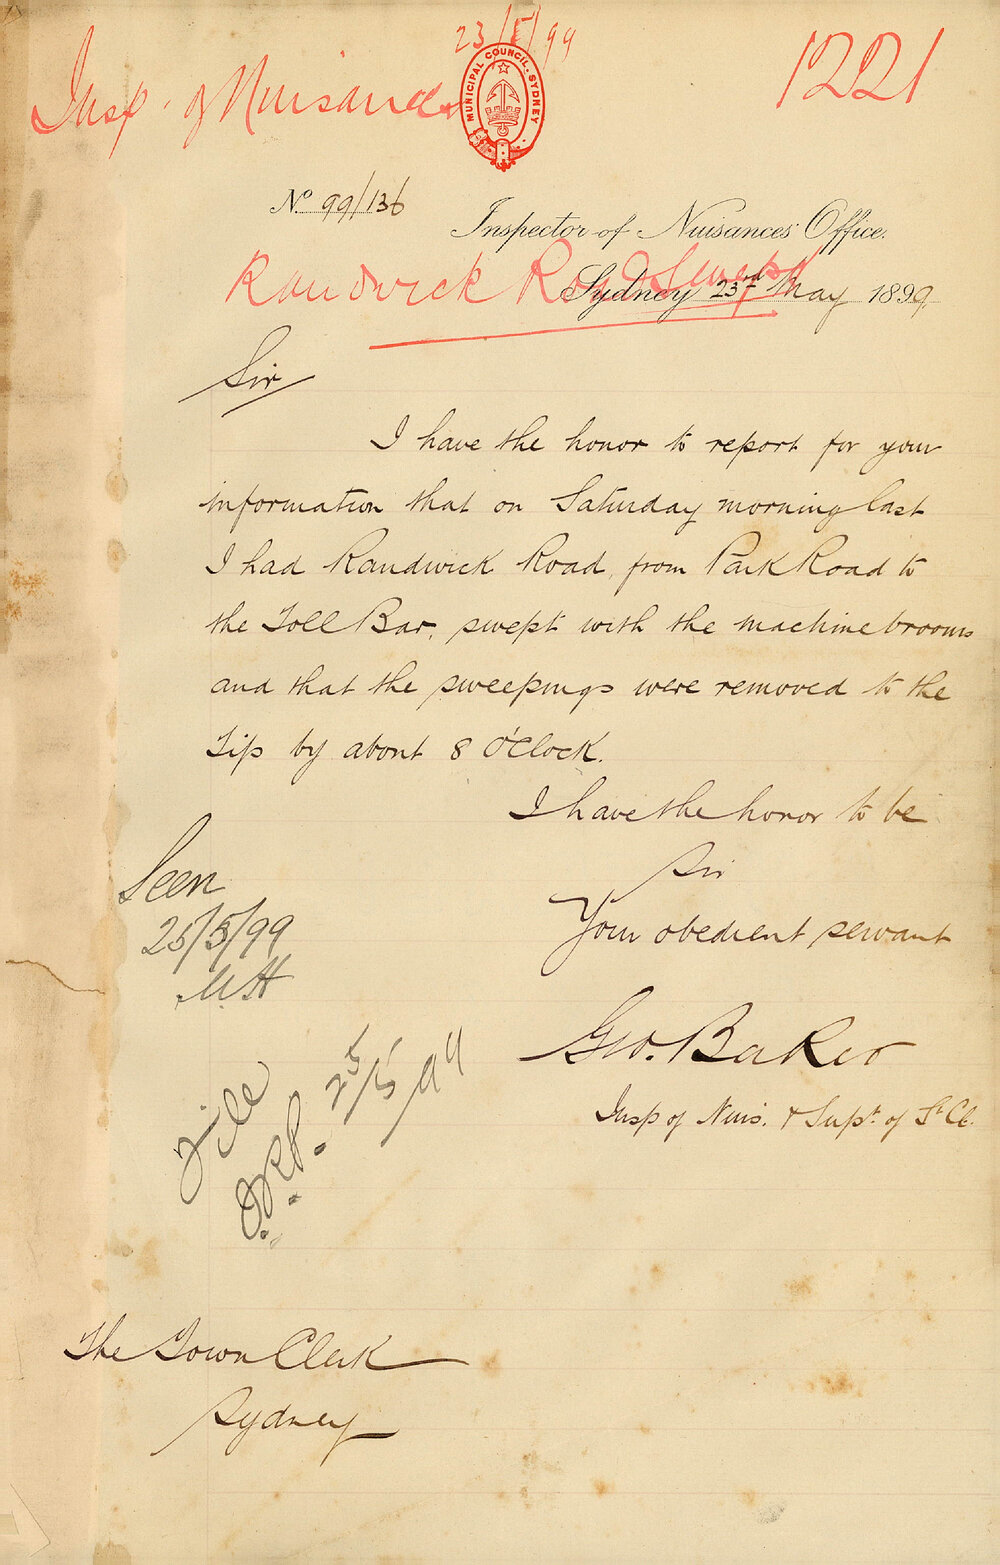 23/5/99
Insp. of Nuisances
MUNICIPAL COUNCIL. SYDNEY
1221
No 99/136
Inspector of Nuisances' Office.
Randwick Road Swept
Sydney 23rd May 1899.
Sir
I have the honor to report for your
information that on Saturday morning last
I had Randwick Road, from Park Road to
the Toll Bar, swept with the machine brooms
and that the sweepings were removed to the
Tip by about 8 O'Clock.
I have the honor to be
Sir
Your obedient servant
Geo. Baker
Insp of Nuis. & Supt. of St Cl.
Seen
25/5/99
File
25/5/99
The Town Clerk
Sydney